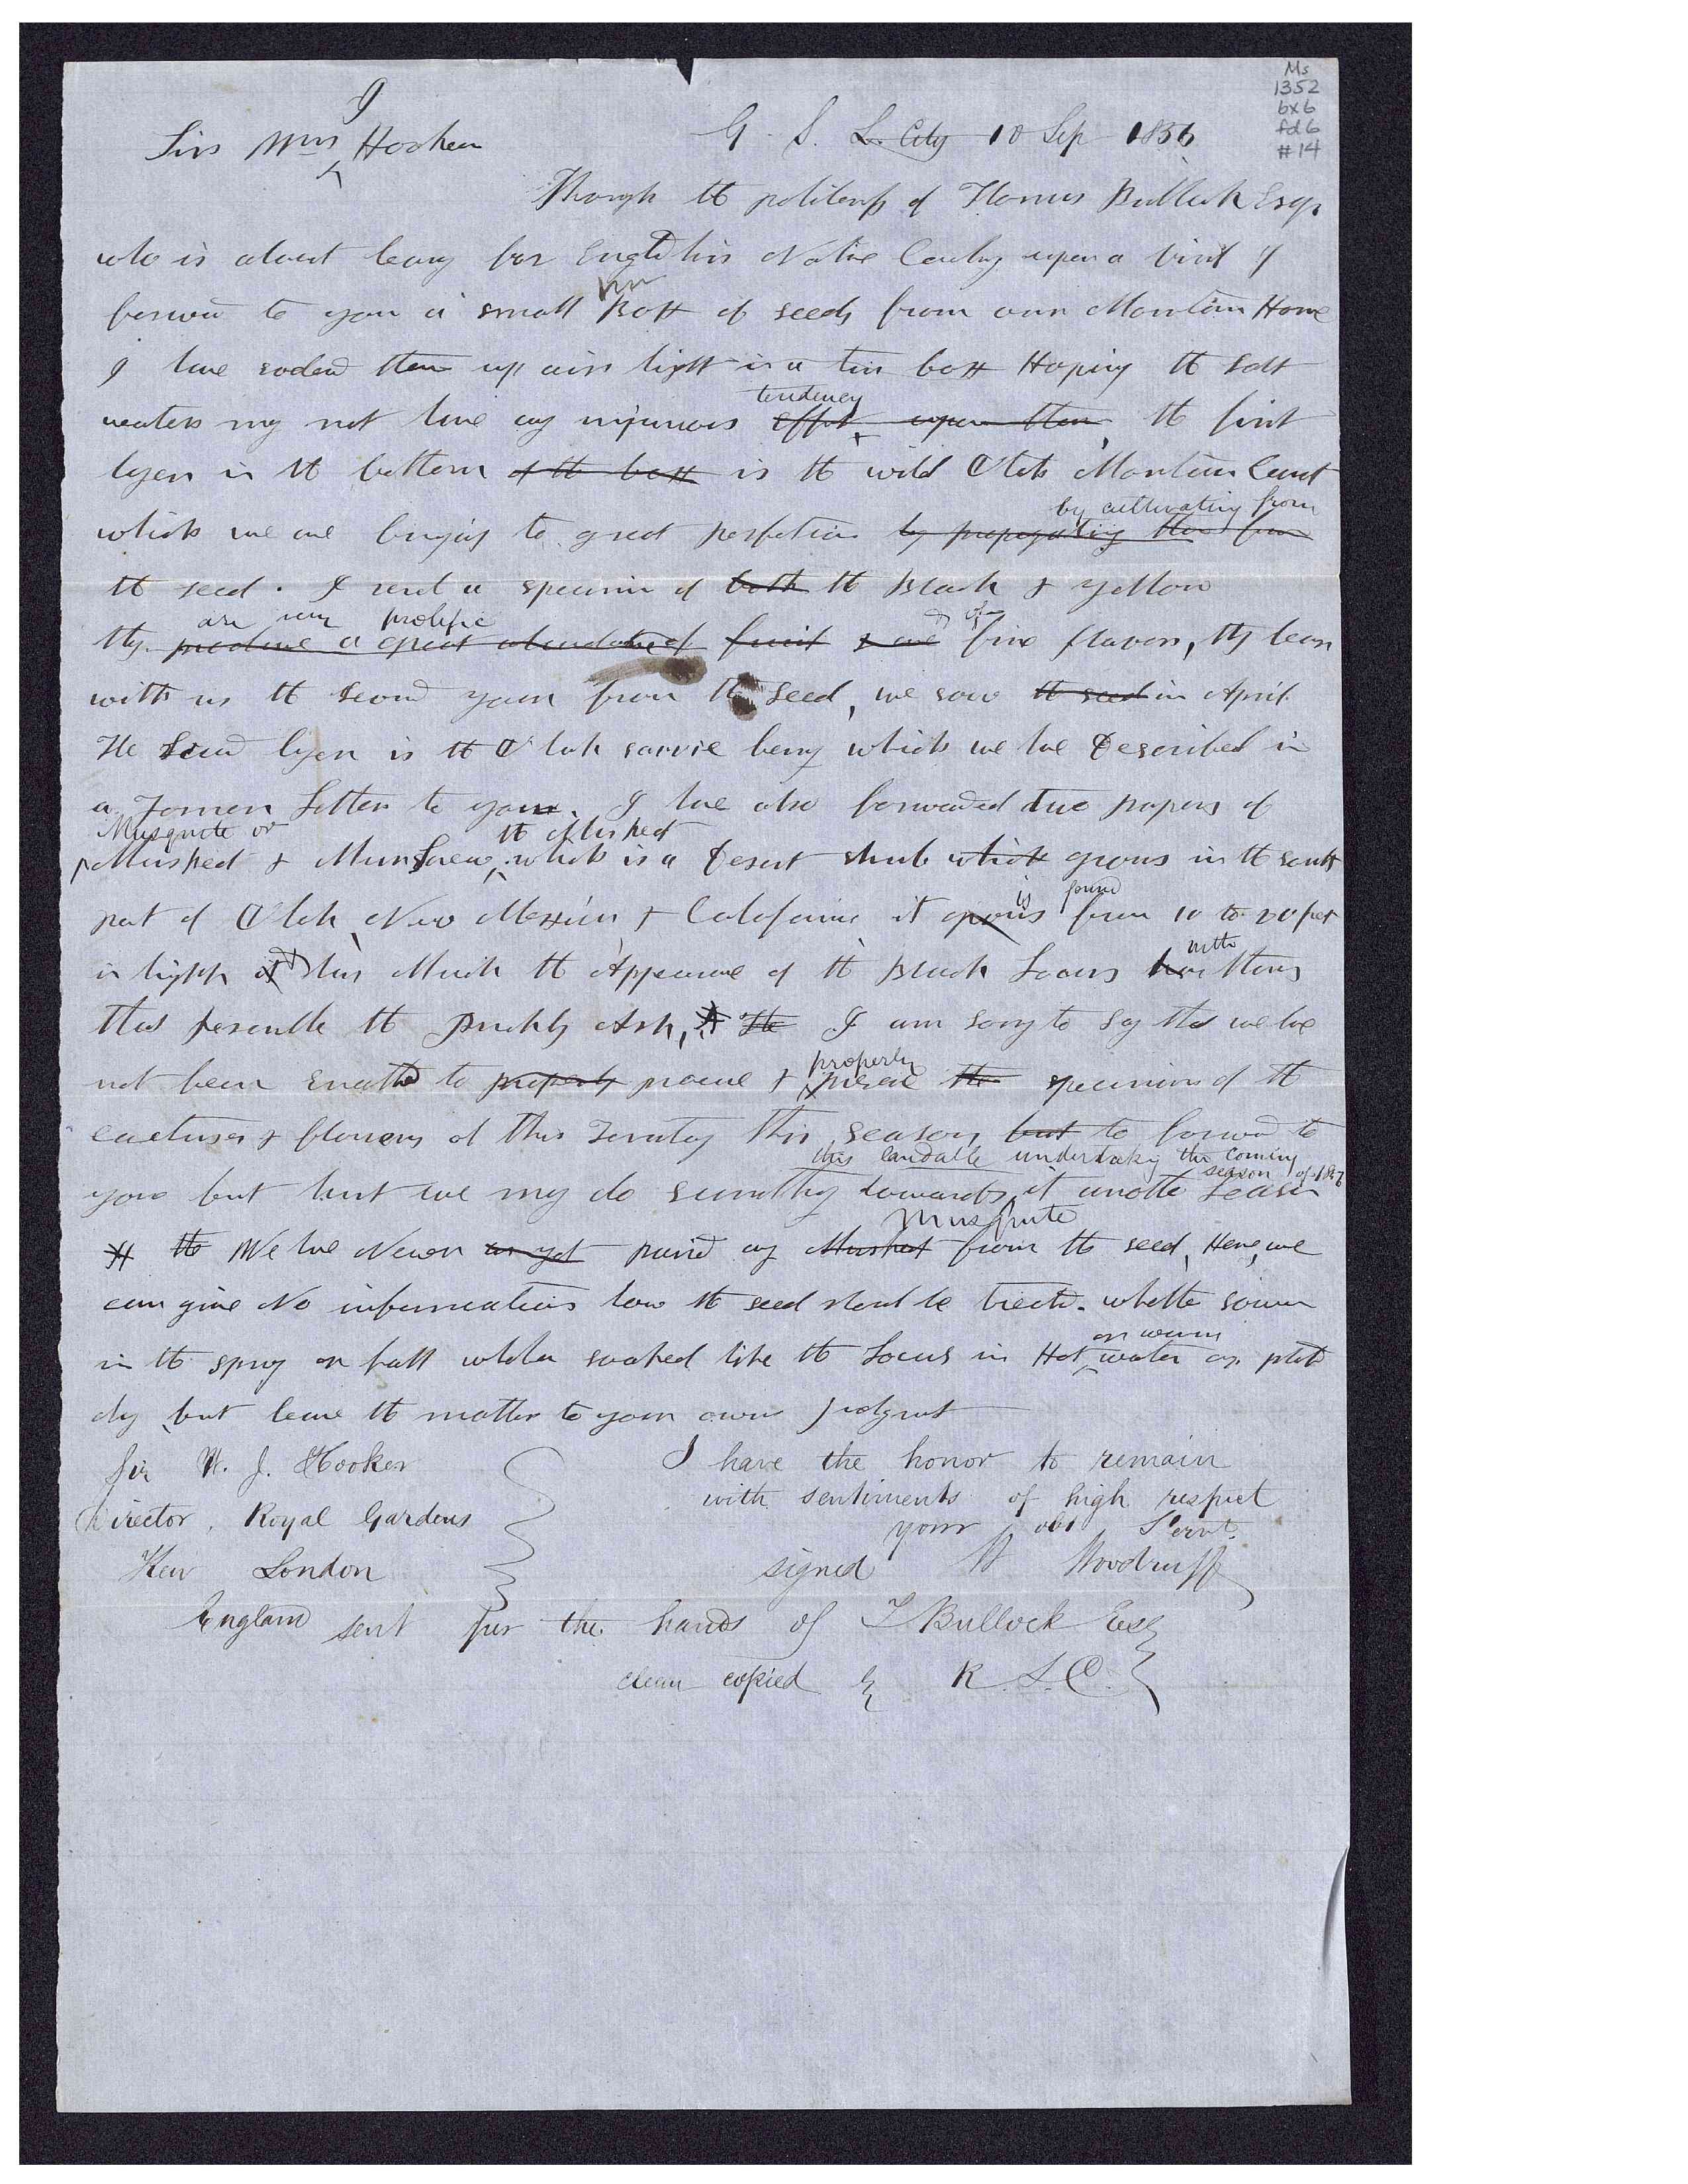 Ms
1352
bx 6
fd 6
#14
G. S. L. City 10 Sep 1856
J
Sir Wm Hooker
Through the politeness of Thomas Bullock Esqr
who is about leavig for Engld his Native Country upon a visit I
tin
forward to you a small Box of seeds from our Mountain Home
I have sodered them up air tight in a tin box Hoping the salt
tendency
waters may not have any injurious effect upon them, the first
layer in the bottom of the box is the wild Utah Mountain Curent
by cultivating from
which we are bringing to great perfection by propagating them from
the seed. I send a specimin of both the Black & yellow
are very prolific of
they produce a great abundance of fruit & are fine flavors, they bear
with us the second year from the seed, we sow the seed in April.
The Second layer is the Utah sarvis berry which we have Described in
a Former Letter to you. I have also forwaded two papers of
Musquite or the Muskeet
Muskeet & which is a Desert shrub which grows in the south
is found
part of Utah, New Mexico & California it grows from 10 to 20 feet
with
in highth & has Much the Appearance of the Black Locus have thorns
that resemble the Prickly Ash, The I am sorry to say that we have
properly
not been enabled to properly procure & the specimins of the
cactuses & flowers of this Territory this season but to forward to
this laudable undertaking the coming
season of 1857
you but trust we may do sumthing towards it another season
Musquite
The We have Never as yet raised any Muskeet from the seed, Hence, we
can give No information how the seed should be treated. whether sown
or warm
in the spring or fall whether soaked like the Locus in Hot water or planted
dry, but leave the matter to your own judgment
Sir W. J. Hooker
Director, Royal Gardens
Kew London
England
I have the honor to remain
with sentiments of high respect
your obt Servt.
signed W Woodruff
sent per the hands of T Bullock Esq
clean copied by R. L. C.